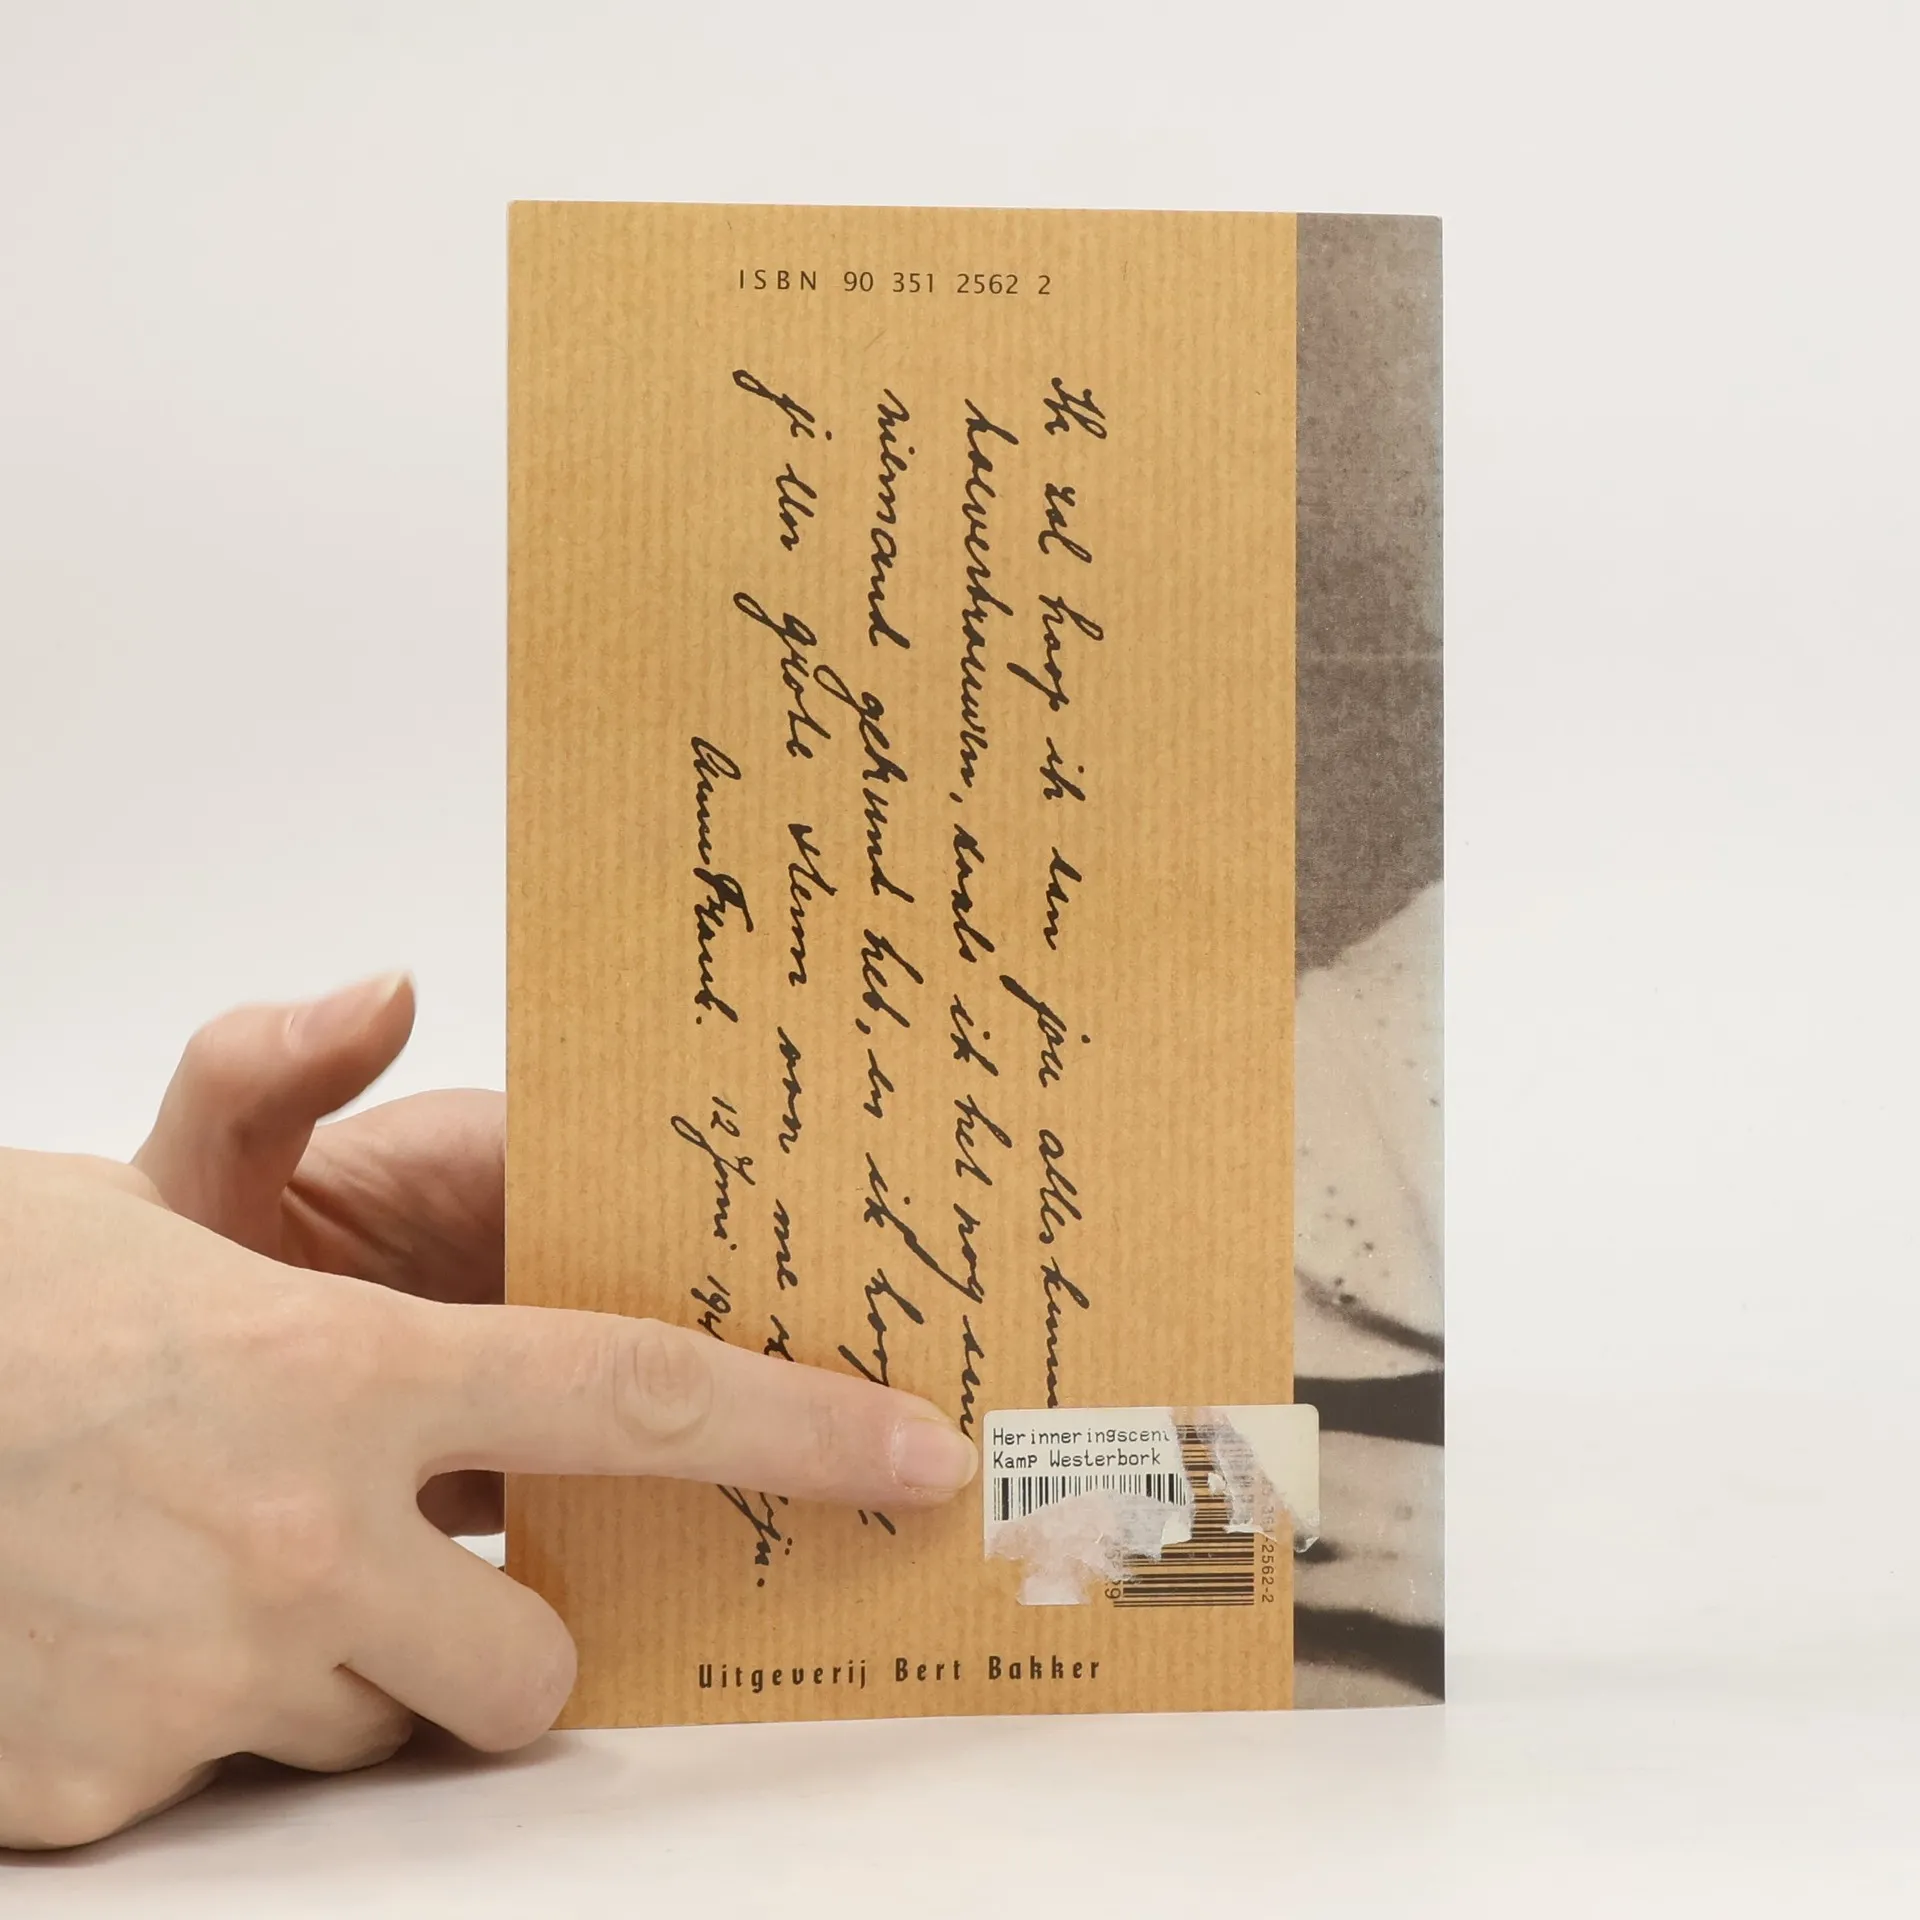 ISBN 90 351 2562 2
Ik zal hoop ik aan jou alles kunn
toevertrouwen, zoals ik het nog aan
niemand gekund heb, en ik hoop
je een grote steun van me zijn.
Anne Frank. 12 Juni 194
Herinneringscent
Kamp Westerbork
2562-2
Uitgeverij Bert Bakker